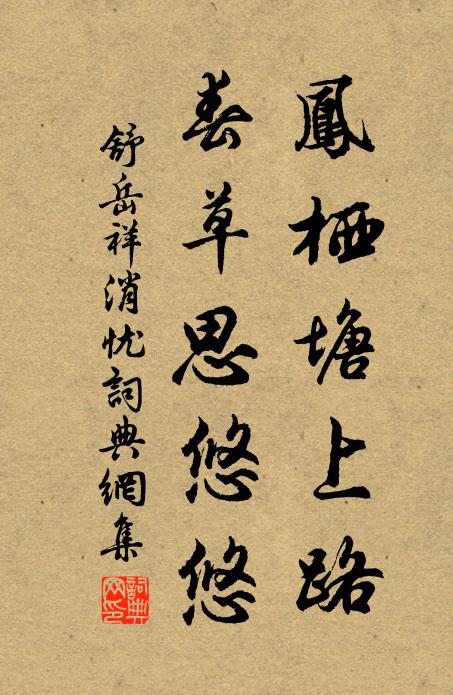 鳳栖塘上路
春草思悠悠
舒岳祥消忧詞典網集
詞典網印